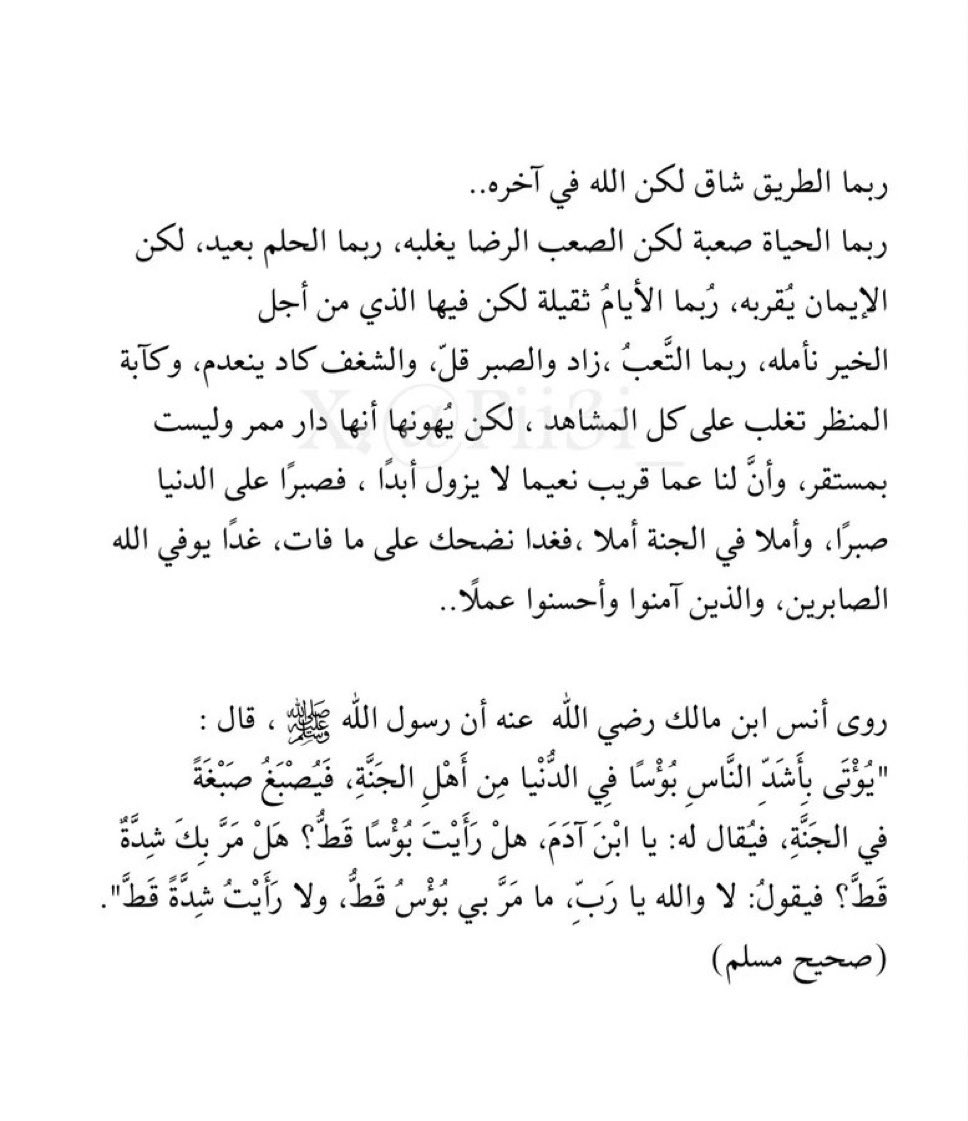 ربما الطريق شاق لكن الله في آخره..
ربما الحياة صعبة لكن الصعب الرضا يغلبه، ربما الحلم بعيد، لكن
الإيمان يُقربه، رُبما الأيامُ ثقيلة لكن فيها الذي من أجل
الخير نأمله، ربما التَّعبُ ،زاد والصبر قلّ، والشغف كاد ينعدم، وكآبة
المنظر تغلب على كل المشاهد ، لكن يُهونها أنها دار ممر وليست
بمستقر، وأنَّ لنا عما قريب نعيما لا يزول أبدًا ، فصبرًا على الدنيا
صبرًا، وأملا في الجنة أملا ،فغدا نضحك على ما فات، غدًا يوفي الله
الصابرين، والذين آمنوا وأحسنوا عملًا..
روى أنس ابن مالك رضي الله عنه أن رسول الله ﷺ ، قال :
"يُؤْتَى بِأَشَدِّ النَّاسِ بُؤْسًا فِي الدُّنْيا مِن أَهْلِ الجَنَّةِ، فَيُصْبَغُ صَبْغَةً
في الجَنَّةِ، فيُقال له: يا ابْنَ آدَمَ، هلْ رَأَيْتَ بُؤْسًا قَطُّ؟ هَلْ مَرَّ بِكَ شِدَّةٌ
قَطَّ؟ فيقولُ: لا والله يا رَبِّ، ما مَرَّ بي بُؤْسُ قَطُّ، ولا رَأَيْتُ شِدَّةً قَطَّ".
(صحيح مسلم)
X.@Fii3i_